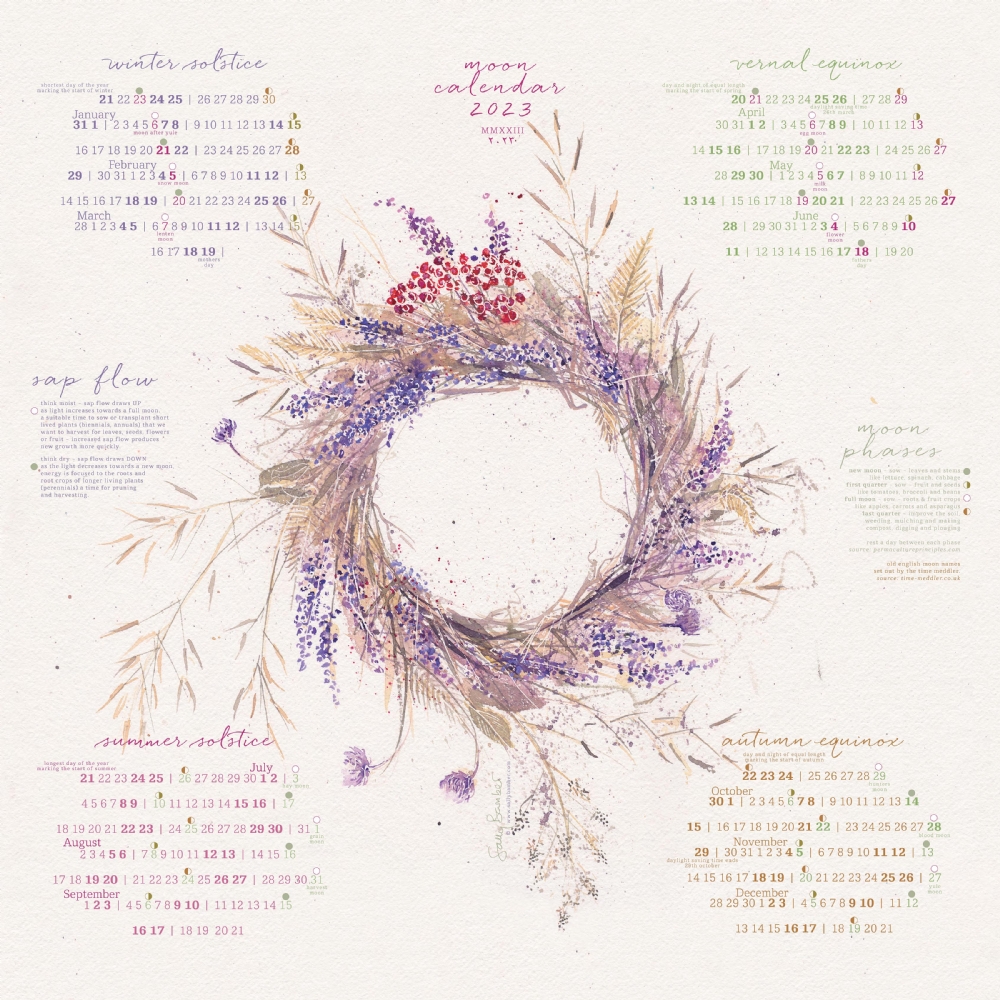 winter solstice
shortest day of the year
marking the start of winter
21 22 23 24 25 | 26 27 28 29 30
January
31 1 | 2 3 4 5 6 7 8 | 9 10 11 12 13 14 15
moon after yule
16 17 18 19 20 21 22 | 23 24 25 26 27 28
February
29 | 30 31 1 2 3 4 5 | 6 7 8 9 10 11 12 | 13
snow moon
14 15 16 17 18 19 | 20 21 22 23 24 25 26 | 27
March
28 1 2 3 4 5 | 6 7 8 9 10 11 12 | 13 14 15
lenten
moon
16 17 18 19 |
mothers
day
moon
calendar
2023
MMXXIII
٢٠٢٣
vernal equinox
day and night of equal length
marking the start of spring
20 21 22 23 24 25 26 | 27 28 29
daylight saving time
26th march
April
30 31 1 2 | 3 4 5 6 7 8 9 | 10 11 12 13
egg moon
14 15 16 | 17 18 19 20 21 22 23 | 24 25 26 27
May
28 29 30 | 1 2 3 4 5 6 7 | 8 9 10 11 12
milk
moon
13 14 | 15 16 17 18 19 20 21 | 22 23 24 25 26 27
June
28 | 29 30 31 1 2 3 4 | 5 6 7 8 9 10
flower
moon
11 | 12 13 14 15 16 17 18 | 19 20
fathers
day
sap flow
think moist - sap flow draws UP
as light increases towards a full moon.
a suitable time to sow or transplant short
lived plants (biennials, annuals) that we
want to harvest for leaves, seeds, flowers
or fruit - increased sap flow produces
new growth more quickly.
think dry - sap flow draws DOWN
as the light decreases towards a new moon.
energy is focused to the roots and
root crops of longer living plants
(perennials) a time for pruning
and harvesting.
moon
phases
new moon - sow - leaves and stems
like lettuce, spinach, cabbage
first quarter - sow - fruit and seeds
like tomatoes, broccoli and beans
full moon - sow - roots & fruit crops
like apples, carrots and asparagus
last quarter - improve the soil
weeding, mulching and making
compost, digging and plouging
rest a day between each phase
source: permacultureprinciples.com
old english moon names
set out by the time meddler.
source: time-meddler.co.uk
summer solstice
longest day of the year
marking the start of summer
July
21 22 23 24 25 | 26 27 28 29 30 1 2 | 3
hay moon
4 5 6 7 8 9 | 10 11 12 13 14 15 16 | 17
18 19 20 21 22 23 | 24 25 26 27 28 29 30 | 31 1
grain
moon
August
2 3 4 5 6 | 7 8 9 10 11 12 13 | 14 15 16
17 18 19 20 | 21 22 23 24 25 26 27 | 28 29 30 31
harvest
moon
September
1 2 3 | 4 5 6 7 8 9 10 | 11 12 13 14 15
16 17 | 18 19 20 21
Sally Bamber
© www.sallybamber.com
autumn equinox
day and night of equal length
marking the start of autumn
22 23 24 | 25 26 27 28 29
hunters
moon
October
30 1 | 2 3 4 5 6 7 8 | 9 10 11 12 13 14
15 | 16 17 18 19 20 21 22 | 23 24 25 26 27 28
blood moon
November
29 | 30 31 1 2 3 4 5 | 6 7 8 9 10 11 12 | 13
daylight saving time ends
29th october
14 15 16 17 18 19 | 20 21 22 23 24 25 26 | 27
yule
moon
December
28 29 30 1 2 3 | 4 5 6 7 8 9 10 | 11 12
13 14 15 16 17 | 18 19 20 21